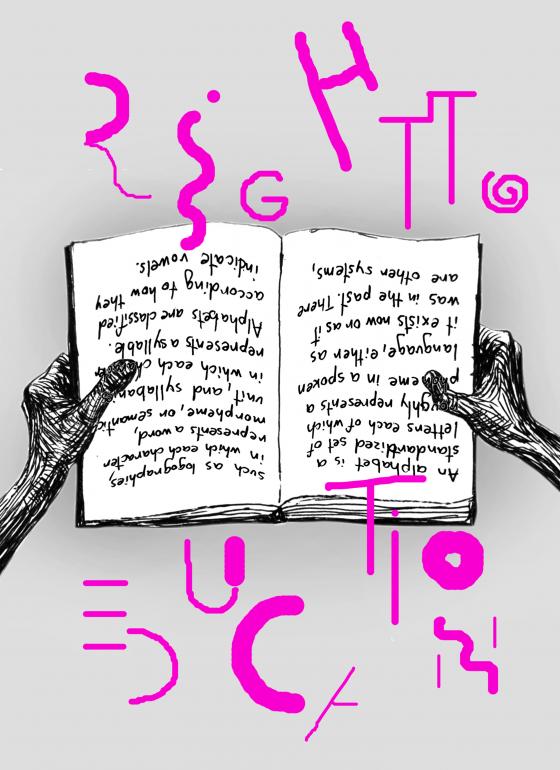 RiGHT TO
An alphabet is a
standardized set of
letters each of which
roughly represents a
in a spoken
language, either as
it exists now or as it
was in the past. There
are other systems,
such as logographies,
in which each character
represents a word,
morpheme, or semantic
unit, and
in which each
represents a syllable.
Alphabets are classified
according to how they
indicate vowels.
EDUCATiON